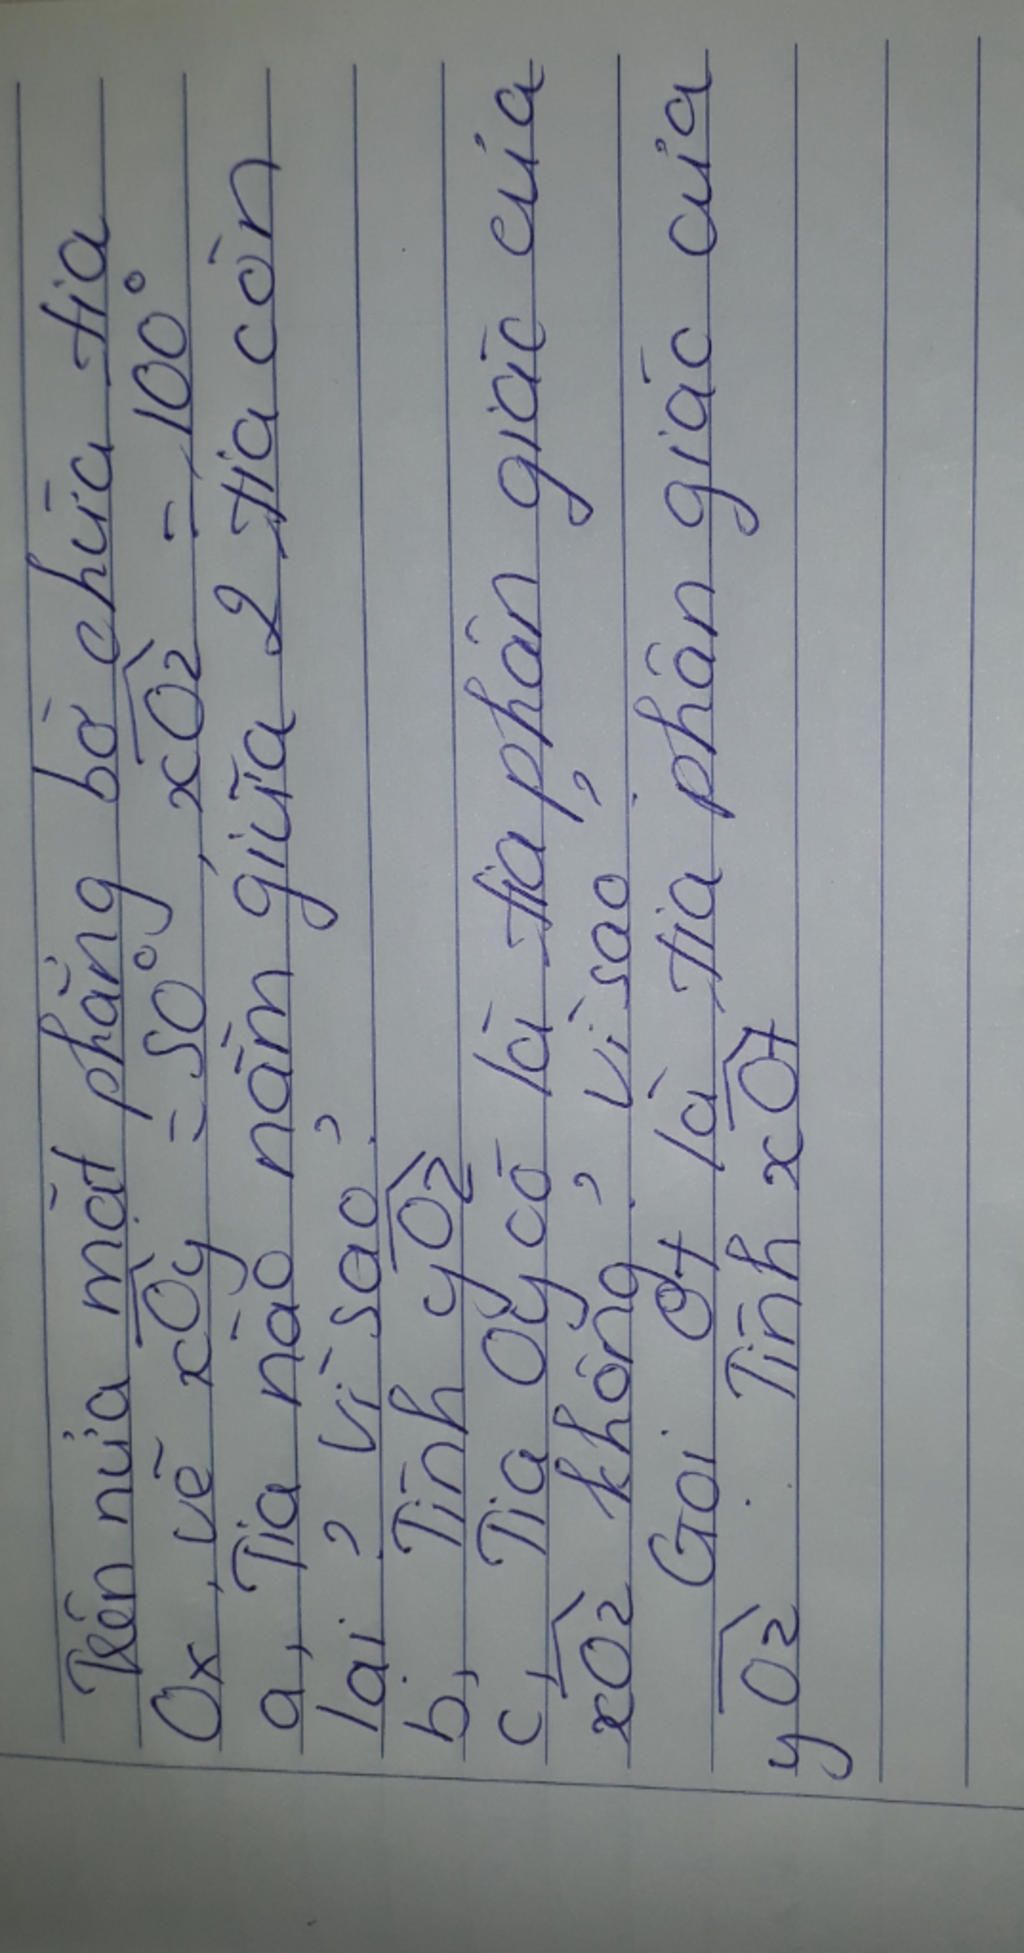 Trên nửa mặt phẳng bờ chứa tia
Ox, vẽ xOy = 50°, xOz = 100°
a, Tia nào nằm giữa 2 tia còn
lại ? Vì sao?
b, Tính yOz
c, Tia Oy có là tia phân giác của
xOz không? Vì sao?
Gọi Ot là tia phân giác của
yOz. Tính xOt